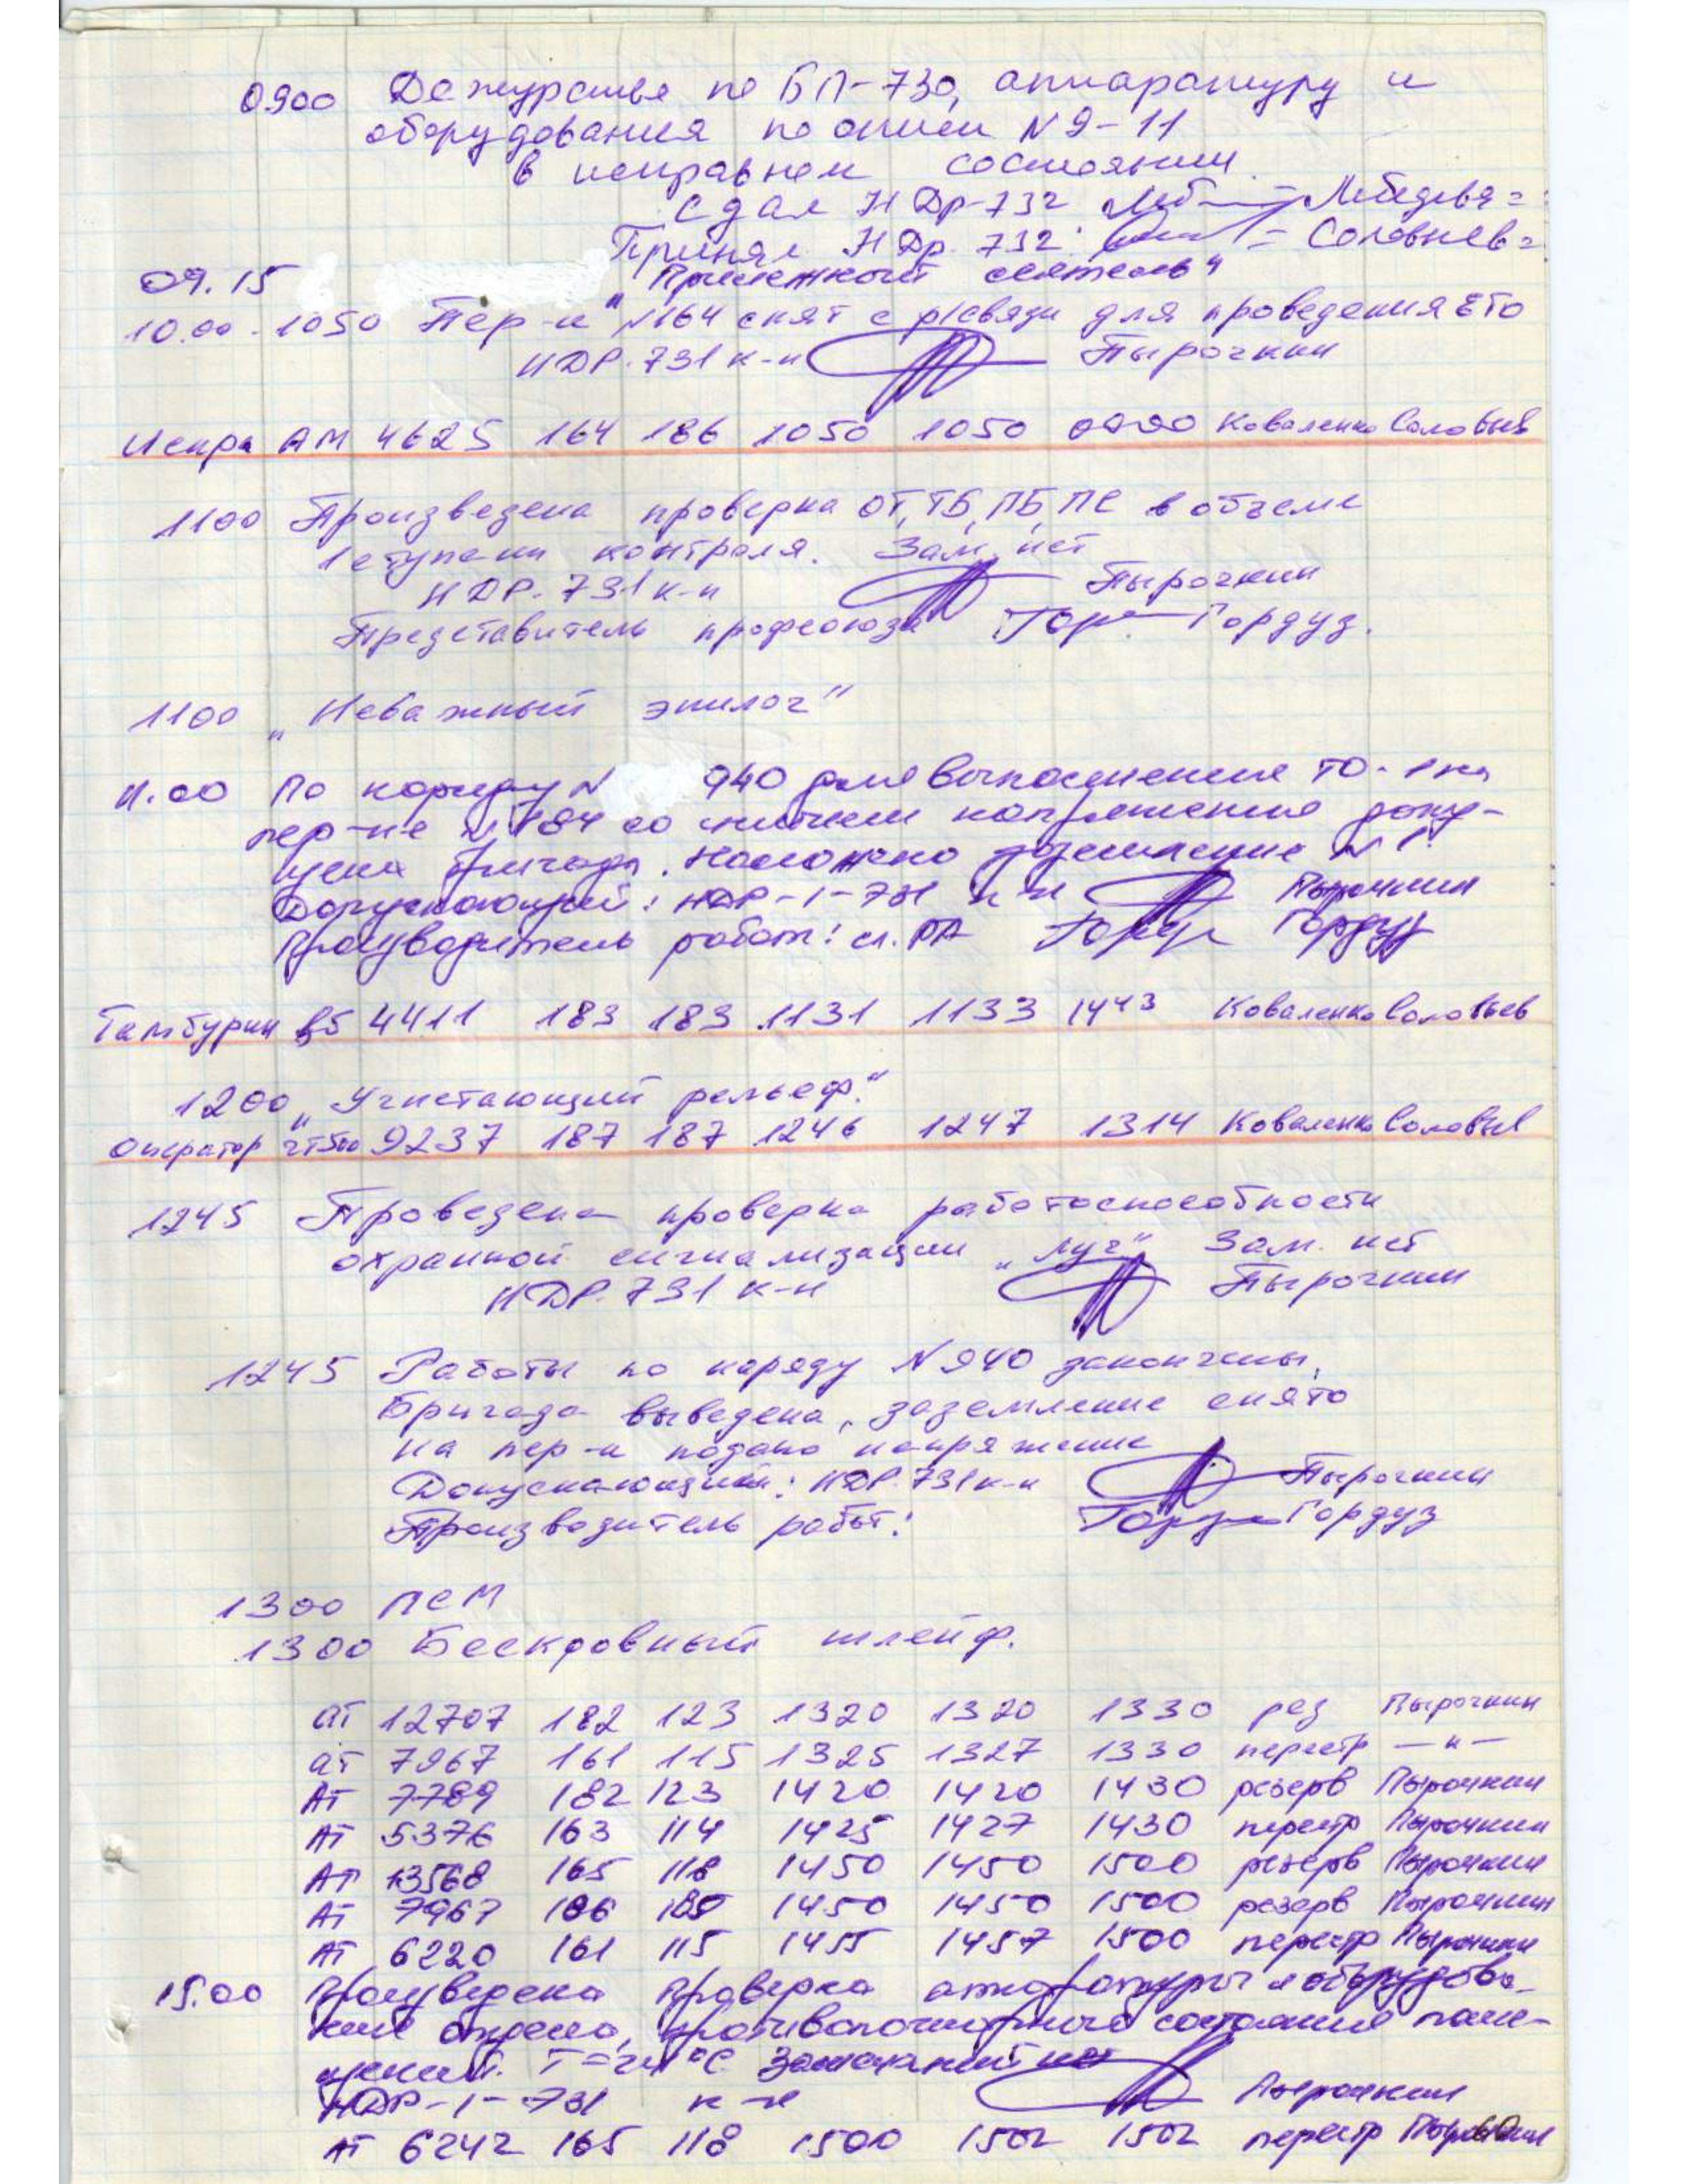 0900 Дежурства по БП-730, аппаратуру и
оборудования по описи N 9-11
в исправном состоянии.
Сдал НДр-732 Лебедева
Принял НДр. 732: Соловьев
09.15 "Приметный святень"
10.00-1050 Пер-к N164 снят с р/связи для проведения ЕТО
НДР.731 к-н Пырочкин
Искра АМ 4625 164 186 1050 1050 0000 Коваленко Соловьев
1100 Произведена проверка ОТ, ТБ, ПБ, ПС в объеме
1 ступени контроля. Зам. нет
НДР. 731 к-н Пырочкин
Представитель профсоюза Гордуз.
1100 „Неважный эпилог"
11.00 По наряду N 940 для выполнения ТО-1 на
пер-ке N 184 со снятием напряжения допу-
щена бригада. Наложено заземление N 1.
Допускающий: НДР-1-731 к-н Пырочкин
Производитель работ: ст. РА Гордуз
Тамбурин Б5 4411 183 183 1131 1133 1443 Коваленко Соловьев
1200 „Угнетающий рельеф."
Оператор ЧТ500 9237 187 187 1246 1247 1314 Коваленко Соловьев
1245 Проведена проверка работоспособности
охранной сигнализации „Луч" Зам. нет
НДР. 731 к-н Пырочкин
1245 Работы по наряду N 940 закончены,
Бригада выведена, заземление снято
на пер-к подано напряжение
Допускающий: НДР. 731 к-н Пырочкин
Производитель работ: Гордуз
1300 ПСМ
1300 Бескровный шлейф.
АТ 12707 182 123 1320 1320 1330 рез Пырочкин
АТ 7967 161 115 1325 1327 1330 перестр — " —
АТ 7789 182 123 1420 1420 1430 резерв Пырочкин
АТ 5376 163 114 1425 1427 1430 перестр Пырочкин
АТ 13568 165 118 1450 1450 1500 резерв Пырочкин
АТ 7967 186 1450 1450 1500 резерв Пырочкин
АТ 6220 161 115 1455 1457 1500 перестр Пырочкин
15.00 Произведена проверка аппаратуры и оборудова-
ние отдела, противопожарного состояния поме-
щений. Т= °С Замечаний нет
НДР-1-731 к-н Пырочкин
АТ 6242 165 118 1500 1502 1502 перестр Пырочкин
60